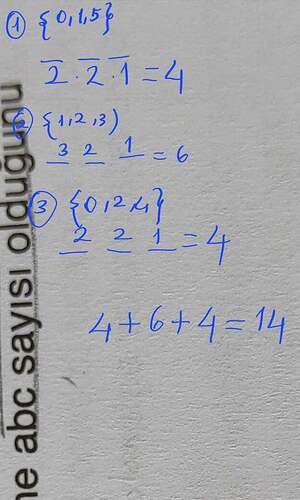 ① {0,1,5}
2 · 2 · 1 = 4
② {1,2,3)
3 2 1 = 6
③ {0,2,4}
2 2 1 = 4
4+6+4=14
ne abc sayısı olduğunu